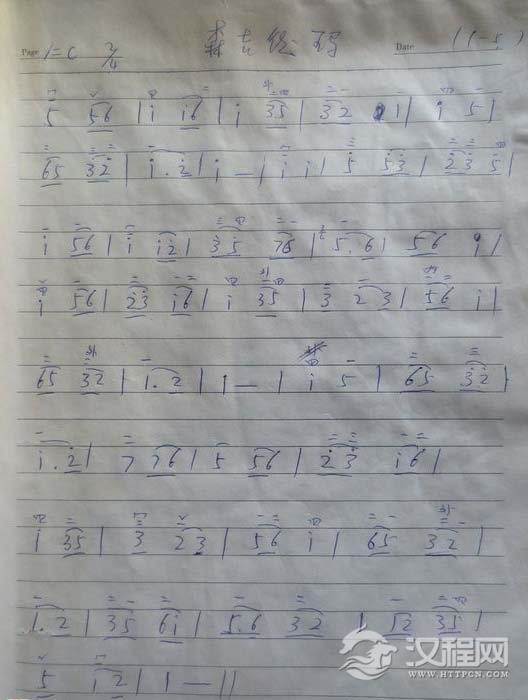 Page 1=C 2/4 森吉德玛 Date (1-5)
5 56 | i i6 | i 35 | 32 1 | i 5 |
65 32 | i.2 | i — | i i | 5 53 | 23 5 |
i 56 | i i2 | 35 76 | 5.6 | 56 i |
i 56 | 23 i6 | i 35 | 3 23 | 56 i |
65 32 | 1.2 | 1 — | i 5 | 65 32 |
i.2 | 7 76 | 5 56 | 23 i6 |
i 35 | 3 23 | 56 i | 65 32 |
1.2 | 35 6i | 5.6 32 | 52 35 |
5 i2 | 1 — ||
汉程网
WWW.HTTPCN.COM